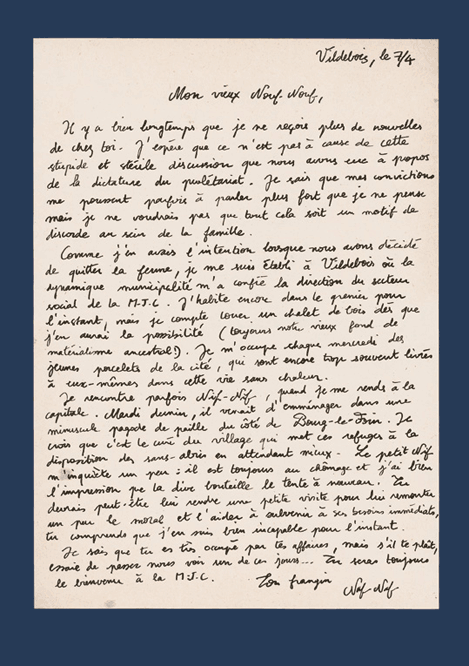 Vildebois, le 7/4
Mon vieux Nouf-Nouf,
Il y a bien longtemps que je ne reçois plus de nouvelles
de chez toi. J'espère que ce n'est pas à cause de cette
stupide et stérile discussion que nous avons eue à propos
de la dictature du prolétariat. Je sais que mes convictions
me poussent parfois à parler plus fort que je ne pense
mais je ne voudrais pas que tout cela soit un motif de
discorde au sein de la famille.
Comme j'en avais l'intention lorsque nous avons décidé
de quitter la ferme, je me suis établi à Vildebois où la
dynamique municipalité m'a confié la direction du secteur
social de la M.J.C. J'habite encore dans le grenier pour
l'instant, mais je compte louer un chalet de bois dès que
j'en aurai la possibilité (toujours notre vieux fond de
matérialisme ancestral !). Je m'occupe chaque mercredi des
jeunes porcelets de la cité, qui sont encore trop souvent livrés
à eux-mêmes dans cette vie sans chaleur.
Je rencontre parfois Nif-Nif, quand je me rends à la
capitale. Mardi dernier, il venait d'emménager dans une
minuscule pagode de paille du côté de Bourg-le-Foin. Je
crois que c'est le curé du village qui met ces refuges à la
disposition des sans-abris en attendant mieux. Le petit Nif
m'inquiète un peu : il est toujours au chômage et j'ai bien
l'impression que la dive bouteille le tente à nouveau. Tu
devrais peut-être lui rendre une petite visite pour lui remonter
un peu le moral et l'aider à subvenir à ses besoins immédiats,
tu comprends que j'en suis bien incapable pour l'instant.
Je sais que tu es très occupé par tes affaires, mais s'il te plaît,
essaie de passer nous voir un de ces jours... Tu seras toujours
le bienvenu à la M.J.C. Ton frangin
Naf-Naf